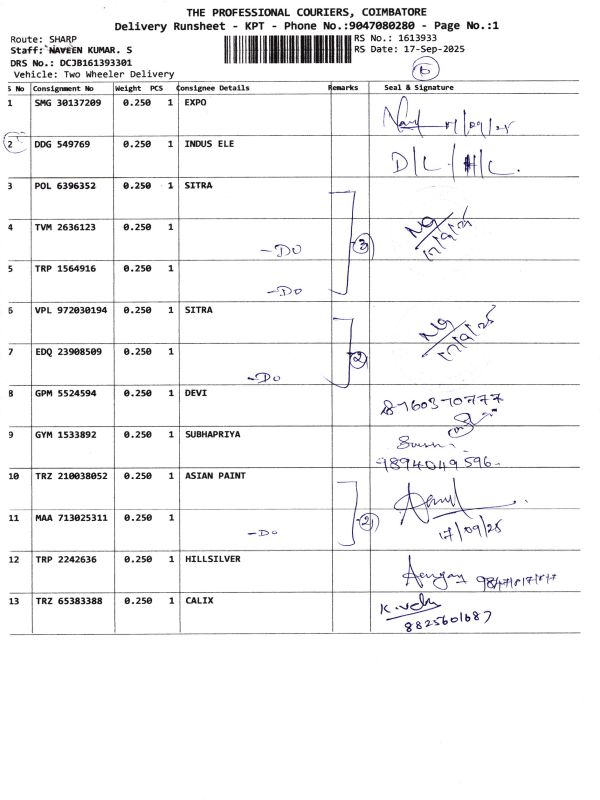 THE PROFESSIONAL COURIERS, COIMBATORE
Delivery Runsheet - KPT - Phone No.:9047080280 - Page No.:1
Route: SHARP
RS No.: 1613933
Staff: NAVEEN KUMAR. S
RS Date: 17-Sep-2025
DRS No.: DCJB161393301
Vehicle: Two Wheeler Delivery
S No Consignment No Weight PCS Consignee Details Remarks Seal & Signature
1 SMG 30137209 0.250 1 EXPO
2 DDG 549769 0.250 1 INDUS ELE D/L/H/L.
3 POL 6396352 0.250 1 SITRA
4 TVM 2636123 0.250 1 -Do 3 17/9/25
5 TRP 1564916 0.250 1 -Do
6 VPL 972030194 0.250 1 SITRA 17/9/25
7 EDQ 23908509 0.250 1 -Do 2
8 GPM 5524594 0.250 1 DEVI 8760370777
9 GYM 1533892 0.250 1 SUBHAPRIYA 9894049596
10 TRZ 210038052 0.250 1 ASIAN PAINT
11 MAA 713025311 0.250 1 -Do 2 17/09/25
12 TRP 2242636 0.250 1 HILLSILVER
13 TRZ 65383388 0.250 1 CALIX 8825601687